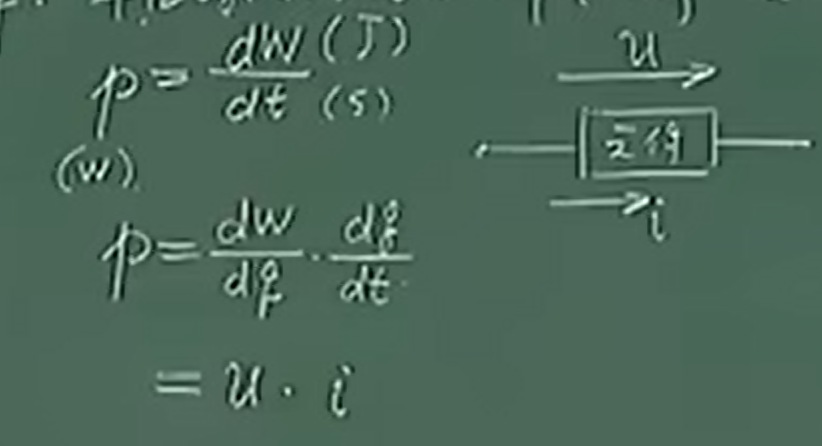 p = dW (J) / dt (S)
(W)
p = dW/dq · dq/dt
= u · i
u
元件
i